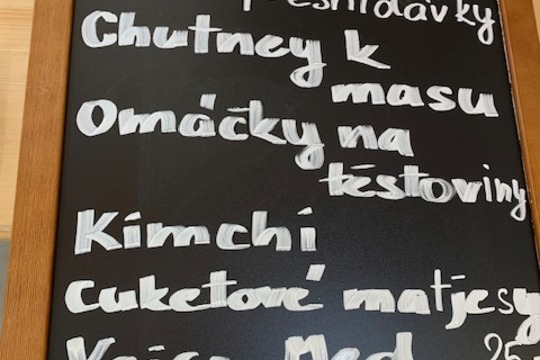 Chutney k
masu
Omáčky na
těstoviny
Kimchi
Cuketové matjesy
Med